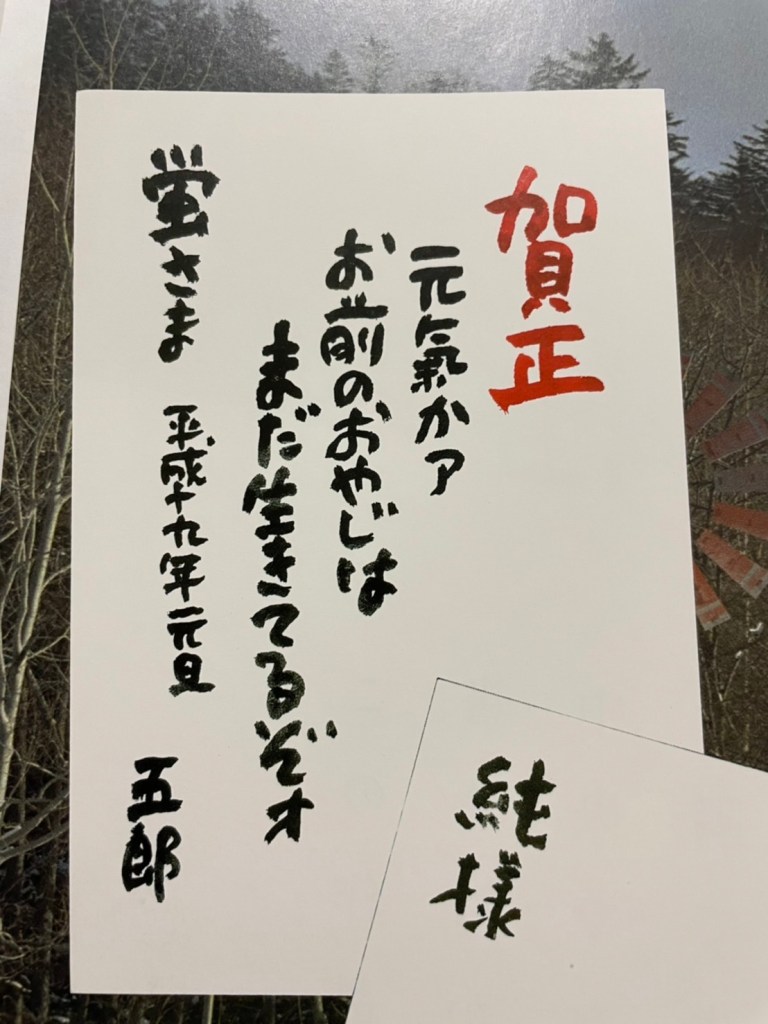 賀正
元氣かァ
お前のおやじは
まだ生きてるぞォ
蛍さま 平成十九年元旦 五郎
純様